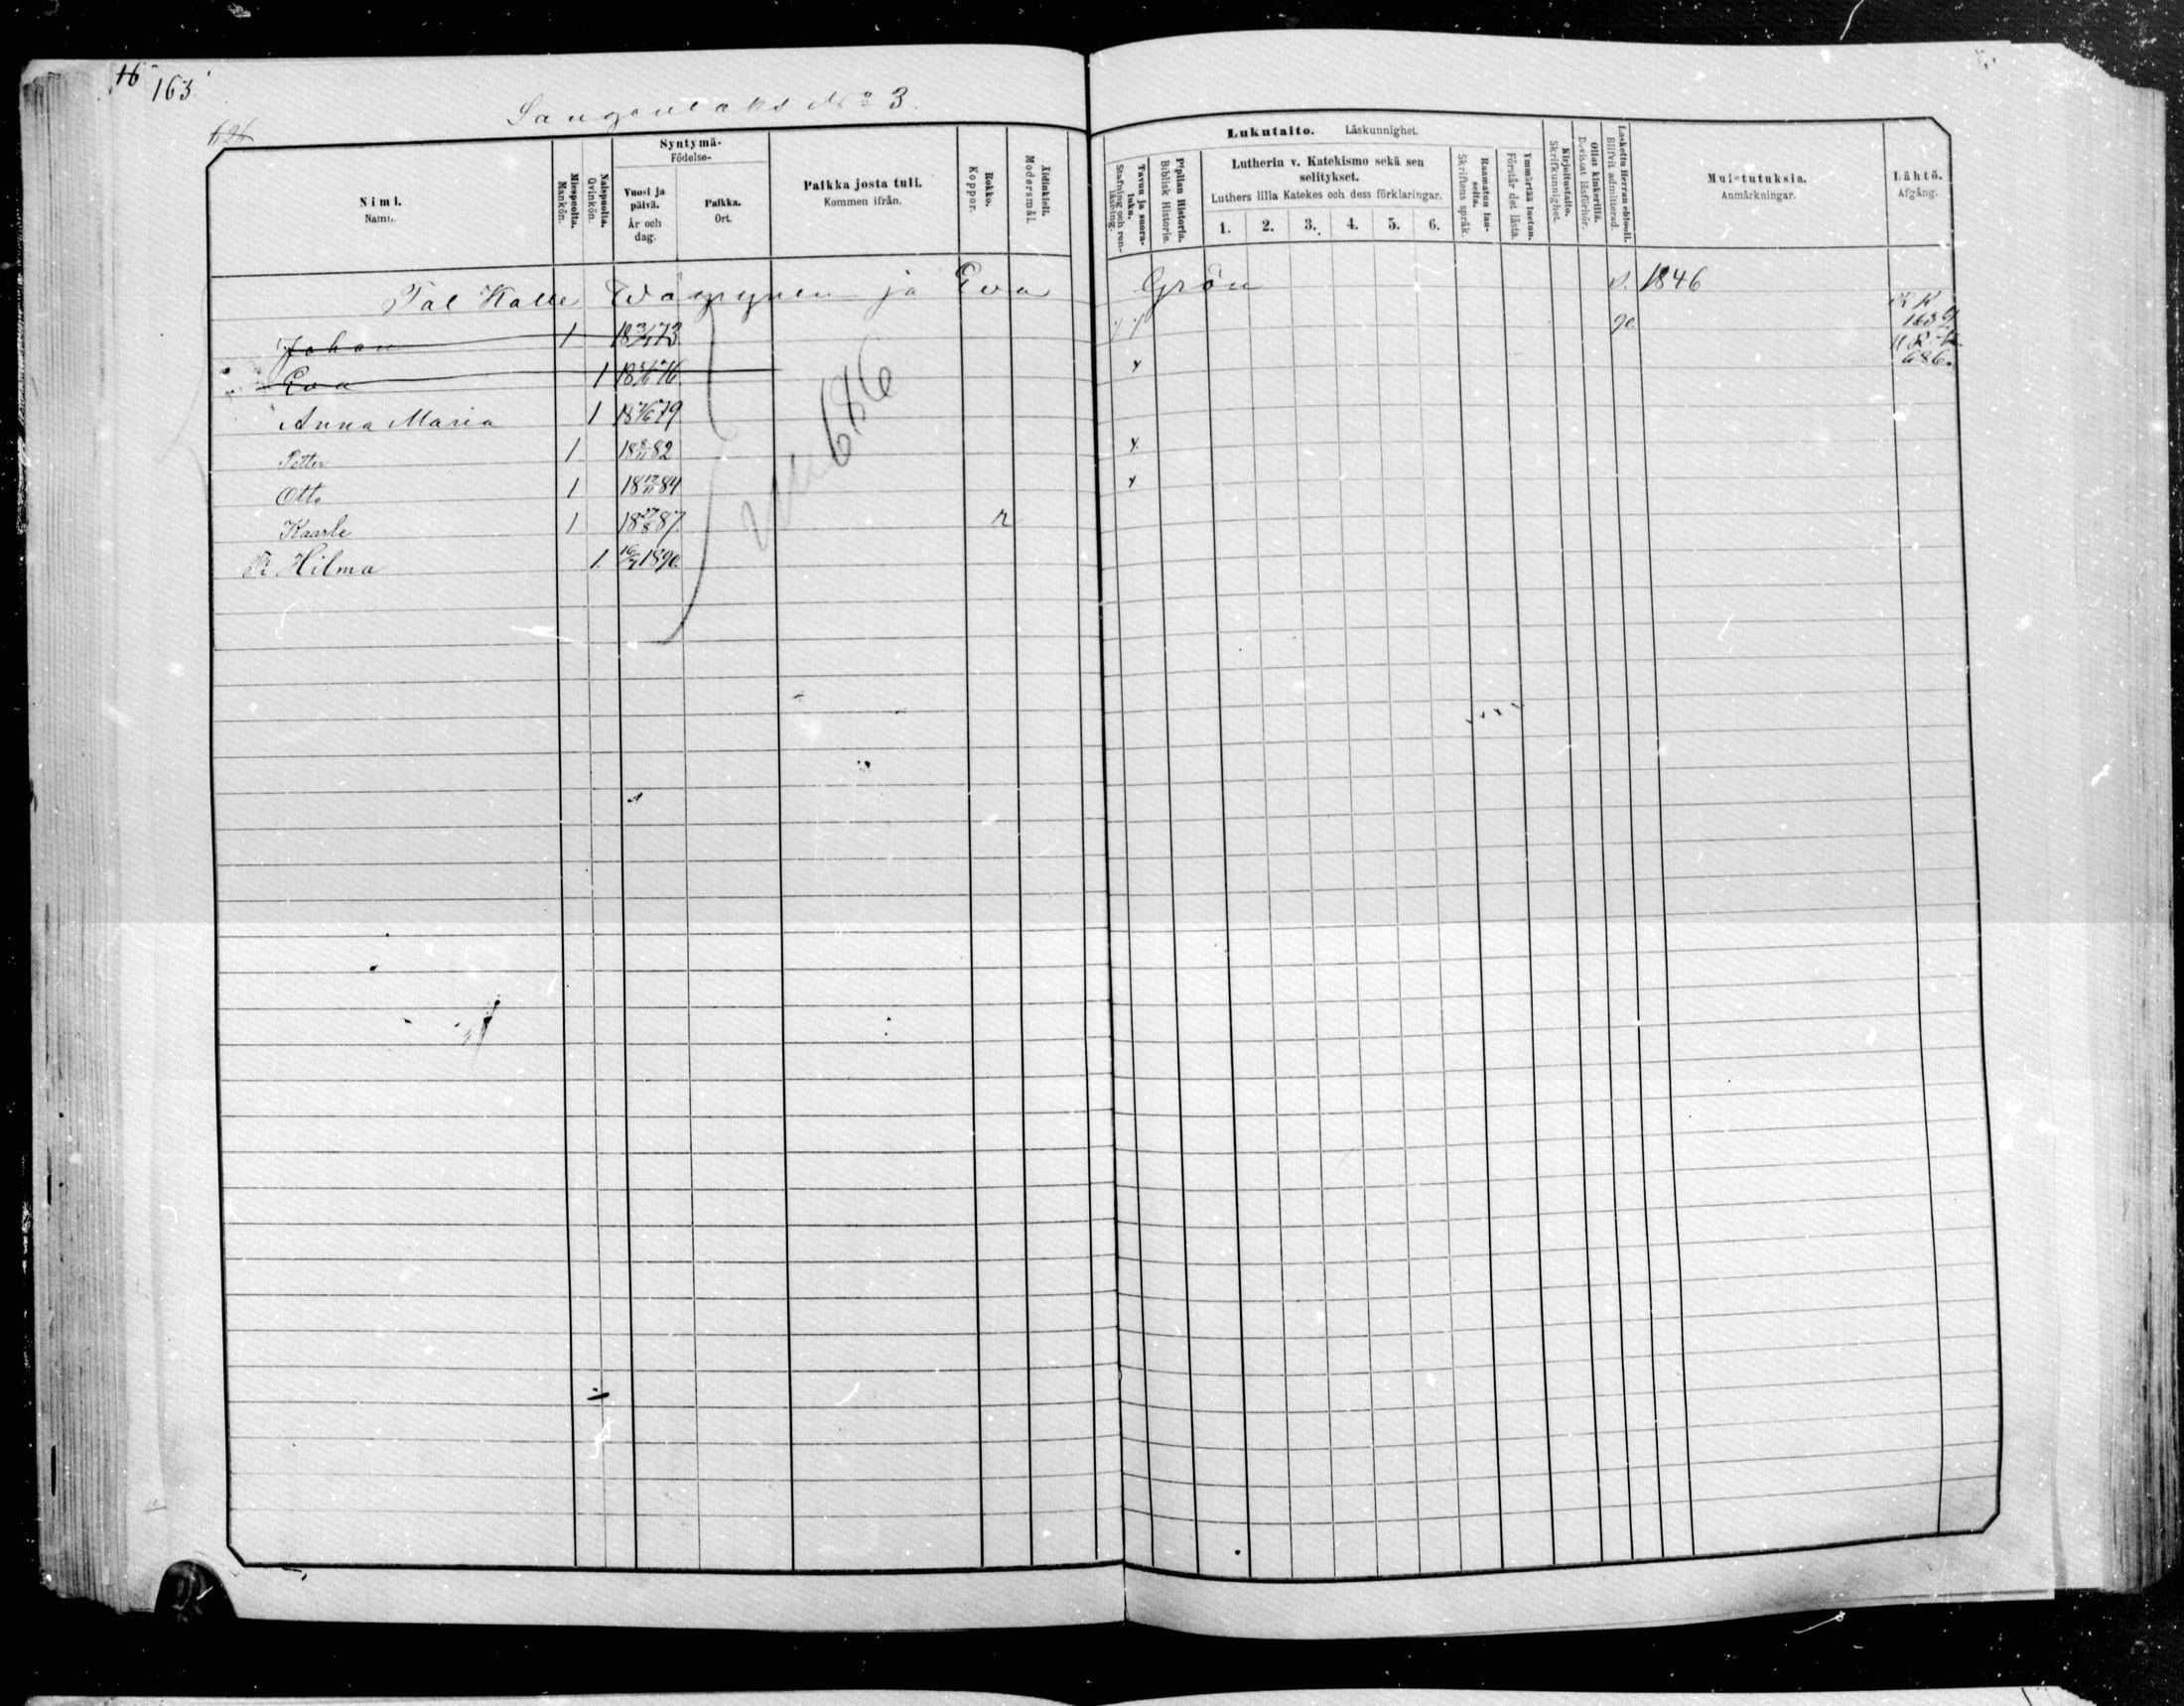 16 163
626
Sangenlaks No 3.
Nimi.
Namn.
Miespuolta.
Mankön.
Naispuolta.
Qvinkön.
Syntymä-
Födelse-
Vuosi ja päivä.
År och dag.
Paikka.
Ort.
Paikka josta tuli.
Kommen ifrån.
Rokko.
Koppor.
Äidinkieli.
Modersmål.
Lukutaito. Läskunnighet.
Tavun ja suora-luku.
Stafning och ren-läsning.
Piplian Historia.
Biblisk Historie.
Lutherin v. Katekismo sekä sen selitykset.
Luthers lilla Katekes och dess förklaringar.
1. 2. 3. 4. 5. 6.
Raamatun lau-seita.
Skriftens språk.
Ymmärtää luetun.
Förstår det lästa.
Kirjoitustaito.
Skrifkunnighet.
Ollut kinkerillä.
Bevistat läsförhör.
Laskettu Herran ehtooll.
Blifvit admitterad.
Muistutuksia.
Anmärkningar.
Lähtö.
Afgång.
Tal Kalle Wäyrynen ja Eva Grön s. 1846
Johan 1 1873 90 163
Eva 1 1876 x 686.
Anna Maria 1 1879
Petter 1 18 8/11 82 x
Otto 1 1884 x
Kaarle 1 18 27/8 87 r
Hilma 1. 1890.
686